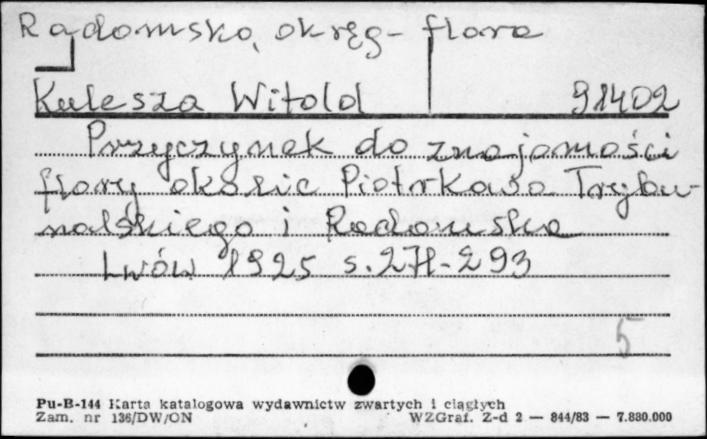 Radomsko, okręg - flora
Kulesza Witold 91402
Przyczynek do znajomości
flory okolic Piotrkowa Trybu-
nalskiego i Radomska
Lwów 1925 s. 271-293
5
Pu-B-144 Karta katalogowa wydawnictw zwartych i ciągłych
Zam. nr 136/DW/ON WZGraf. Z-d 2 — 844/83 — 7.880.000